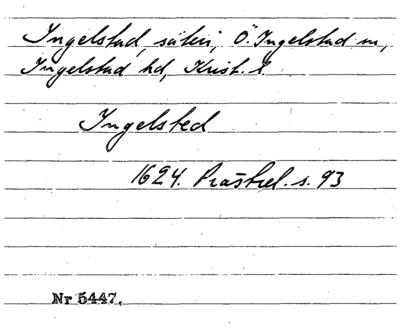 Ingelstad, säteri, Ö. Ingelstad sn,
Ingelstad hd, Krist. l.
Ingelsted
1624. Prästrel. s. 93
Nr 5447.